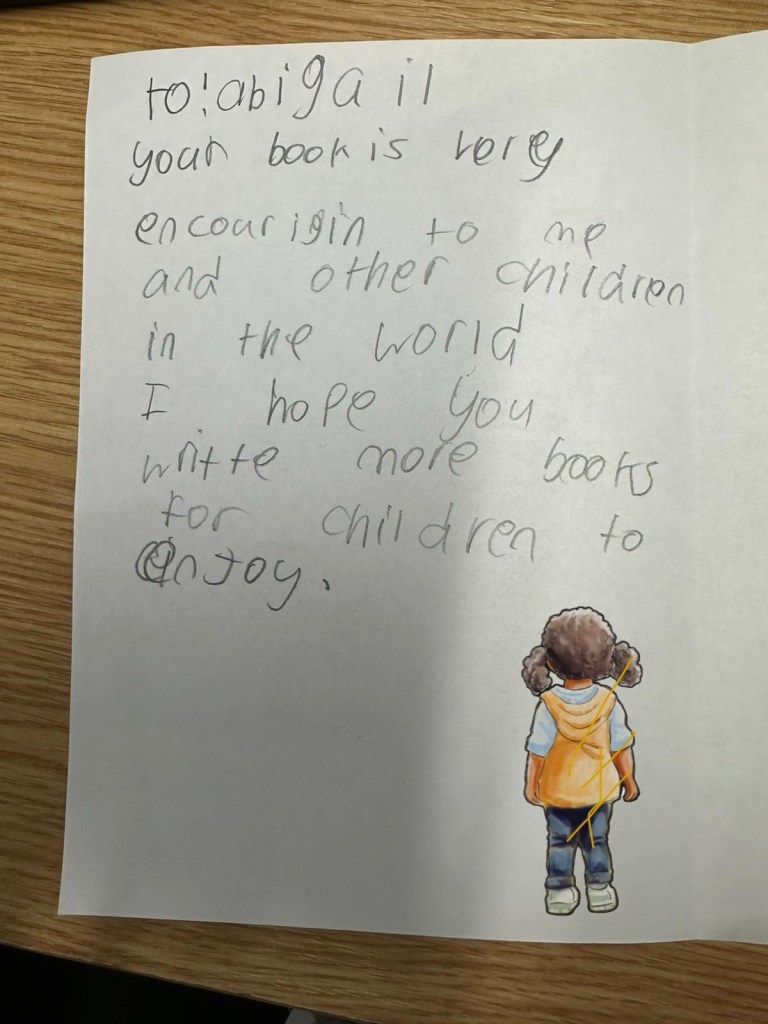 to! abigail
your book is very
encourigin to me
and other children
in the world
I hope you
writte more books
for children to
enjoy.